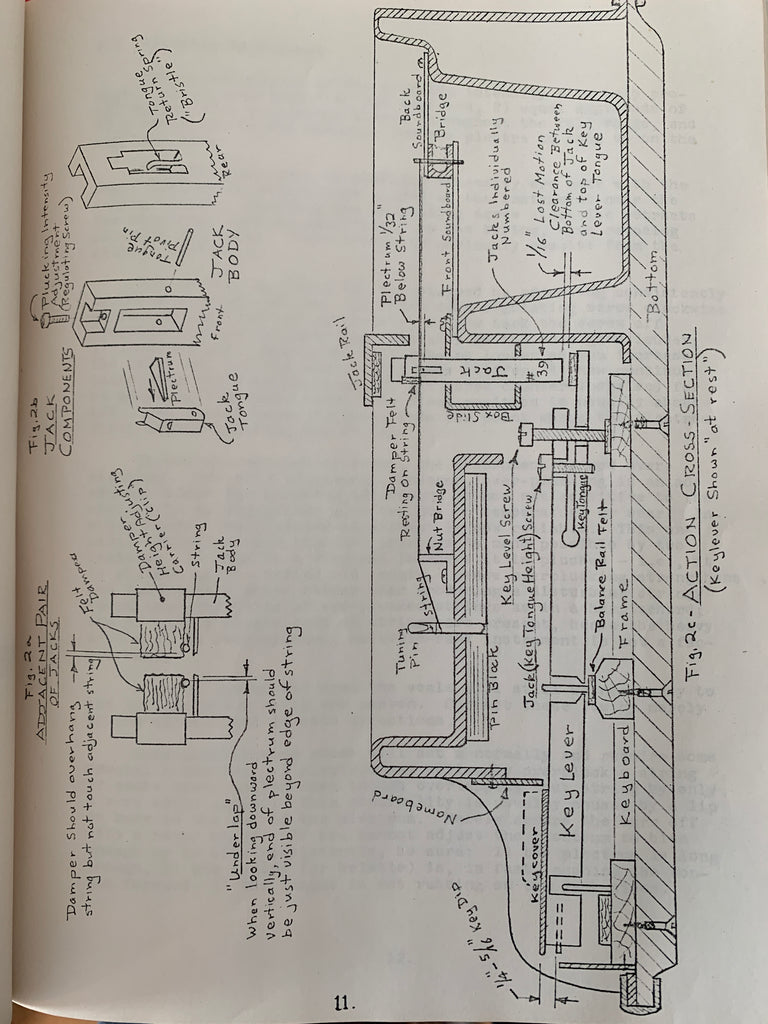 Fig. 2a
ADJACENT PAIR
OF JACKS
Damper should overhang
string but not touch adjacent string
Felt
Damper
Damper
Height Adjusting
String
Jack
Body
"Underlap"
When looking downward
vertically, end of plectrum should
be just visible beyond edge of string
Fig. 2b
JACK
COMPONENTS
Plucking Intensity
Adjustment
(Regulating Screw)
Tongue Spring
Return
("Bristle")
Plectrum
Jack
Tongue
Front
Tongue
Pivot Pin
JACK
BODY
Rear
Jack Rail
Plectrum 1/32"
Below String
Back
Soundboard
Bridge
Front Soundboard
Jacks Individually
Numbered
1/16" Lost Motion
Clearance Between
Bottom of Jack
and top of Key
Lever Tongue
Damper Felt
Resting on String
Jack
#39
Box Slide
Nut Bridge
String
Tuning
Pin
Pin Block
Key Level Screw
Jack (Key Tongue Height) Screw
Key Tongue
Balance Rail Felt
Nameboard
Keycover
Key Lever
Keyboard Frame
Bottom
1/4"-5/16" Key Dip
Fig. 2c - ACTION CROSS-SECTION
(Keylever Shown "at rest")
11.